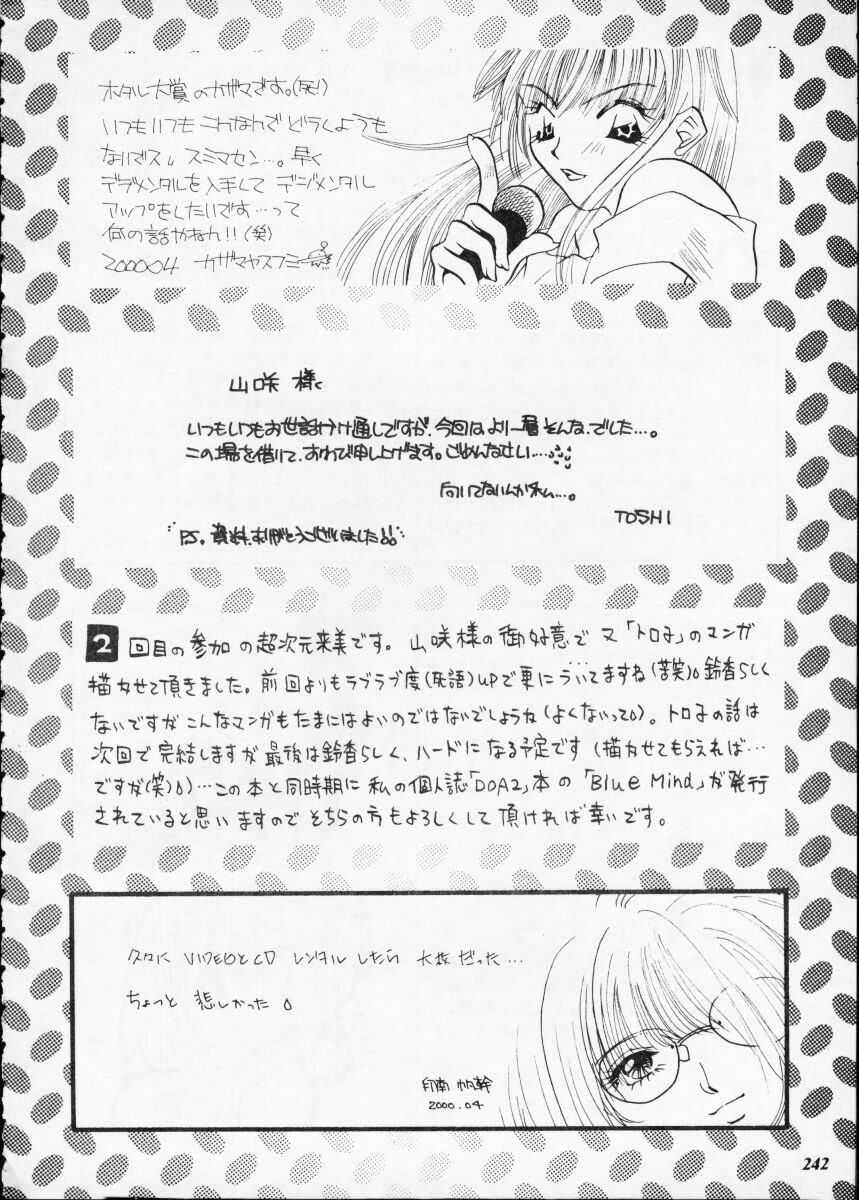 ホタル大賞のカザマです。(死)
いつもいつもこんなんでどうしようも
ないデス。スミマセン…。早く
デジメンタルを入手してデジメンタル
アップをしたいです…って
何の話かなん!!(笑)
2000 04 カザマヤスフミ
山咲様へ
いつもいつもお世話かけ通しですが、今回はより一層そんな、でした…。
この場を借りて、おわび申し上げます。ごめんなさい…
向いてないんかなん…。
TOSHI
P.S. 資料、ありがとうございました!!
2回目の参加の超次元来美です。山咲様の御好意で又「トロ子」のマンガ
描かせて頂きました。前回よりもラブラブ度(死語)UPで更にういてますね(苦笑)。鈴香らしく
ないですがこんなマンガもたまにはよいのではないでしょうね(よくないって)。トロ子の話は
次回で完結しますが最後は鈴香らしく、ハードになる予定です(描かせてもらえれば…
ですが(笑))…この本と同時期に私の個人誌「DOA2」本の「Blue Mind」が発行
されていると思いますのでそちらの方もよろしくして頂ければ幸いです。
久々に VIDEOとCD レンタルしたら 大抵だった…
ちょっと 悲しかった
印南 帆幹
2000.04
242